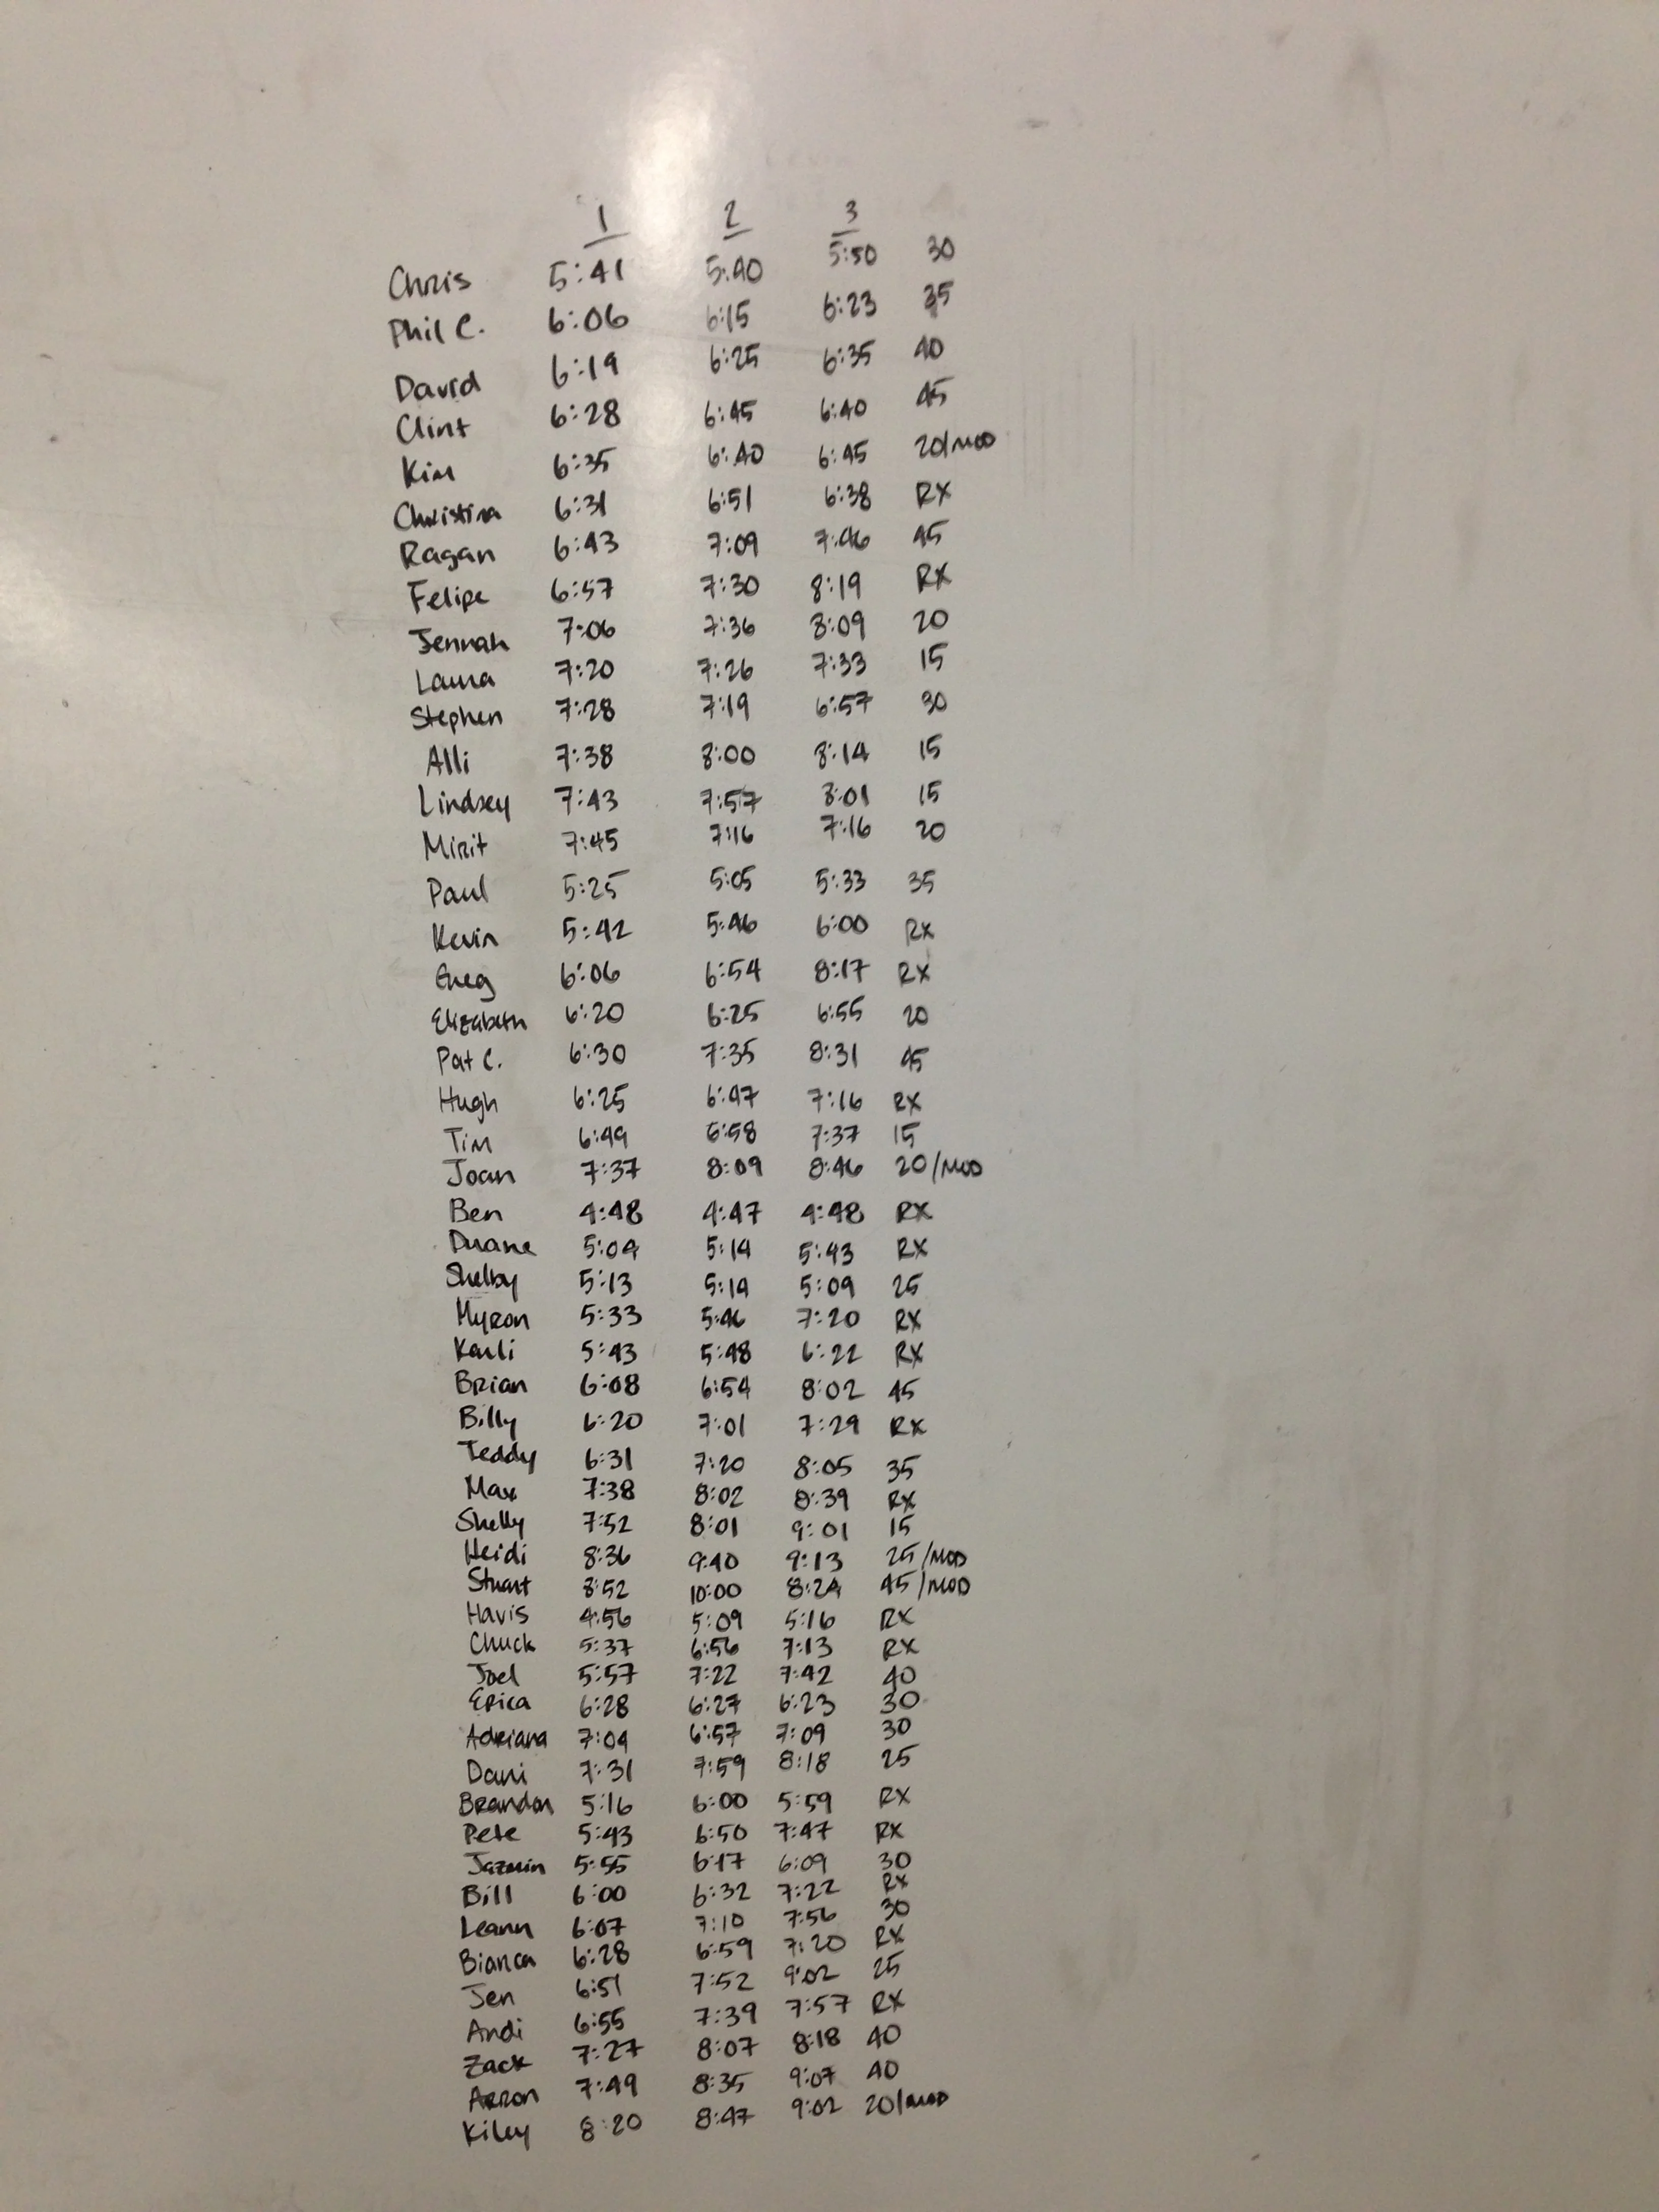 1 2 3
Chris 5:41 5:40 5:50 30
Phil C. 6:06 6:15 6:23 35
David 6:19 6:25 6:35 40
Clint 6:28 6:45 6:40 45
Kim 6:35 6:40 6:45 20/MOD
Christina 6:31 6:51 6:38 RX
Ragan 6:43 7:09 7:46 45
Felipe 6:57 7:30 8:19 RX
Jennah 7:06 7:36 8:09 20
Laura 7:20 7:26 7:33 15
Stephen 7:28 7:19 6:57 30
Alli 7:38 8:00 8:14 15
Lindsey 7:43 7:57 8:01 15
Mirit 7:45 7:16 7:16 20
Paul 5:25 5:05 5:33 35
Kevin 5:42 5:46 6:00 RX
Greg 6:06 6:54 8:17 RX
Elizabeth 6:20 6:25 6:55 20
Pat C. 6:30 7:35 8:31 45
Hugh 6:25 6:47 7:16 RX
Tim 6:49 6:58 7:37 15
Joan 7:37 8:09 8:46 20/MOD
Ben 4:48 4:47 4:48 RX
Duane 5:04 5:14 5:43 RX
Shelby 5:13 5:14 5:09 25
Myron 5:33 5:46 7:20 RX
Karli 5:43 5:48 6:22 RX
Brian 6:08 6:54 8:02 45
Billy 6:20 7:01 7:29 RX
Teddy 6:31 7:20 8:05 35
Max 7:38 8:02 8:39 RX
Shelly 7:52 8:01 9:01 15
Heidi 8:36 9:40 9:13 25/MOD
Stuart 8:52 10:00 8:24 45/MOD
Havis 4:56 5:09 5:16 RX
Chuck 5:37 6:56 7:13 RX
Joel 5:57 7:22 7:42 40
Erica 6:28 6:27 6:23 30
Adriana 7:04 6:57 7:09 30
Dani 7:31 7:59 8:18 25
Brandon 5:16 6:00 5:59 RX
Pete 5:43 6:50 7:47 RX
Jazmin 5:55 6:17 6:09 30
Bill 6:00 6:32 7:22 RX
Leann 6:07 7:10 7:56 30
Bianca 6:28 6:59 7:20 RX
Jen 6:51 7:52 9:02 25
Andi 6:55 7:39 7:57 RX
Zack 7:27 8:07 8:18 40
Arron 7:49 8:35 9:07 40
Kiley 8:20 8:47 9:02 20/MOD